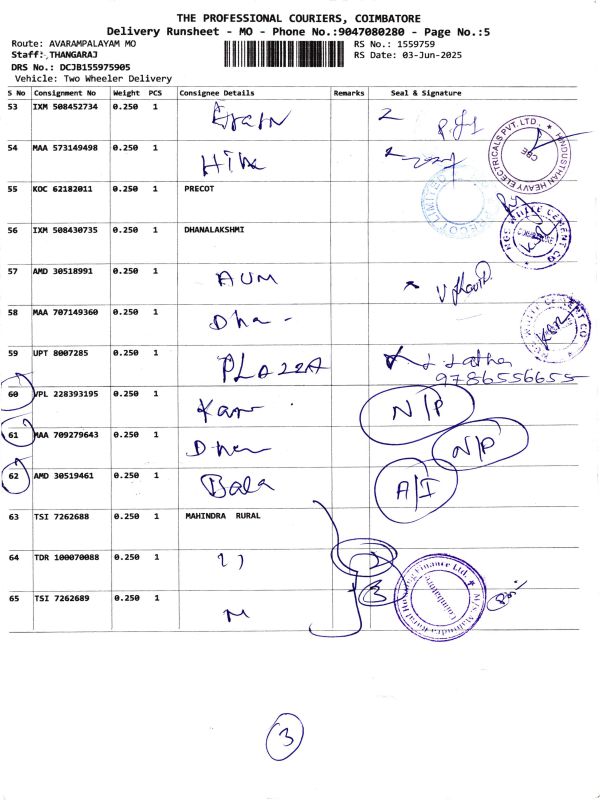 THE PROFESSIONAL COURIERS, COIMBATORE
Delivery Runsheet - MO - Phone No.:9047080280 - Page No.:5
Route: AVARAMPALAYAM MO RS No.: 1559759
Staff: THANGARAJ RS Date: 03-Jun-2025
DRS No.: DCJB155975905
Vehicle: Two Wheeler Delivery
S No Consignment No Weight PCS Consignee Details Remarks Seal & Signature
53 IXM 508452734 0.250 1
54 MAA 573149498 0.250 1
HINDUSTHAN HEAVY ELECTRICALS PVT. LTD. CBE
55 KOC 62182011 0.250 1 PRECOT
PRECOT LIMITED
56 IXM 508430735 0.250 1 DHANALAKSHMI
WHITE CEMENT CO
57 AMD 30518991 0.250 1 AUM
58 MAA 707149360 0.250 1 Dha
WHITE CEMENT CO
59 UPT 8007285 0.250 1 PLAZZA Latha
9786556655
60 VPL 228393195 0.250 1 Kan N/P
61 MAA 709279643 0.250 1 Dha N/P
62 AMD 30519461 0.250 1 Bala A/I
63 TSI 7262688 0.250 1 MAHINDRA RURAL
64 TDR 100070088 0.250 1 ''
65 TSI 7262689 0.250 1 3
M/s. Mahindra Rural Housing Finance Ltd. Coimbatore
3